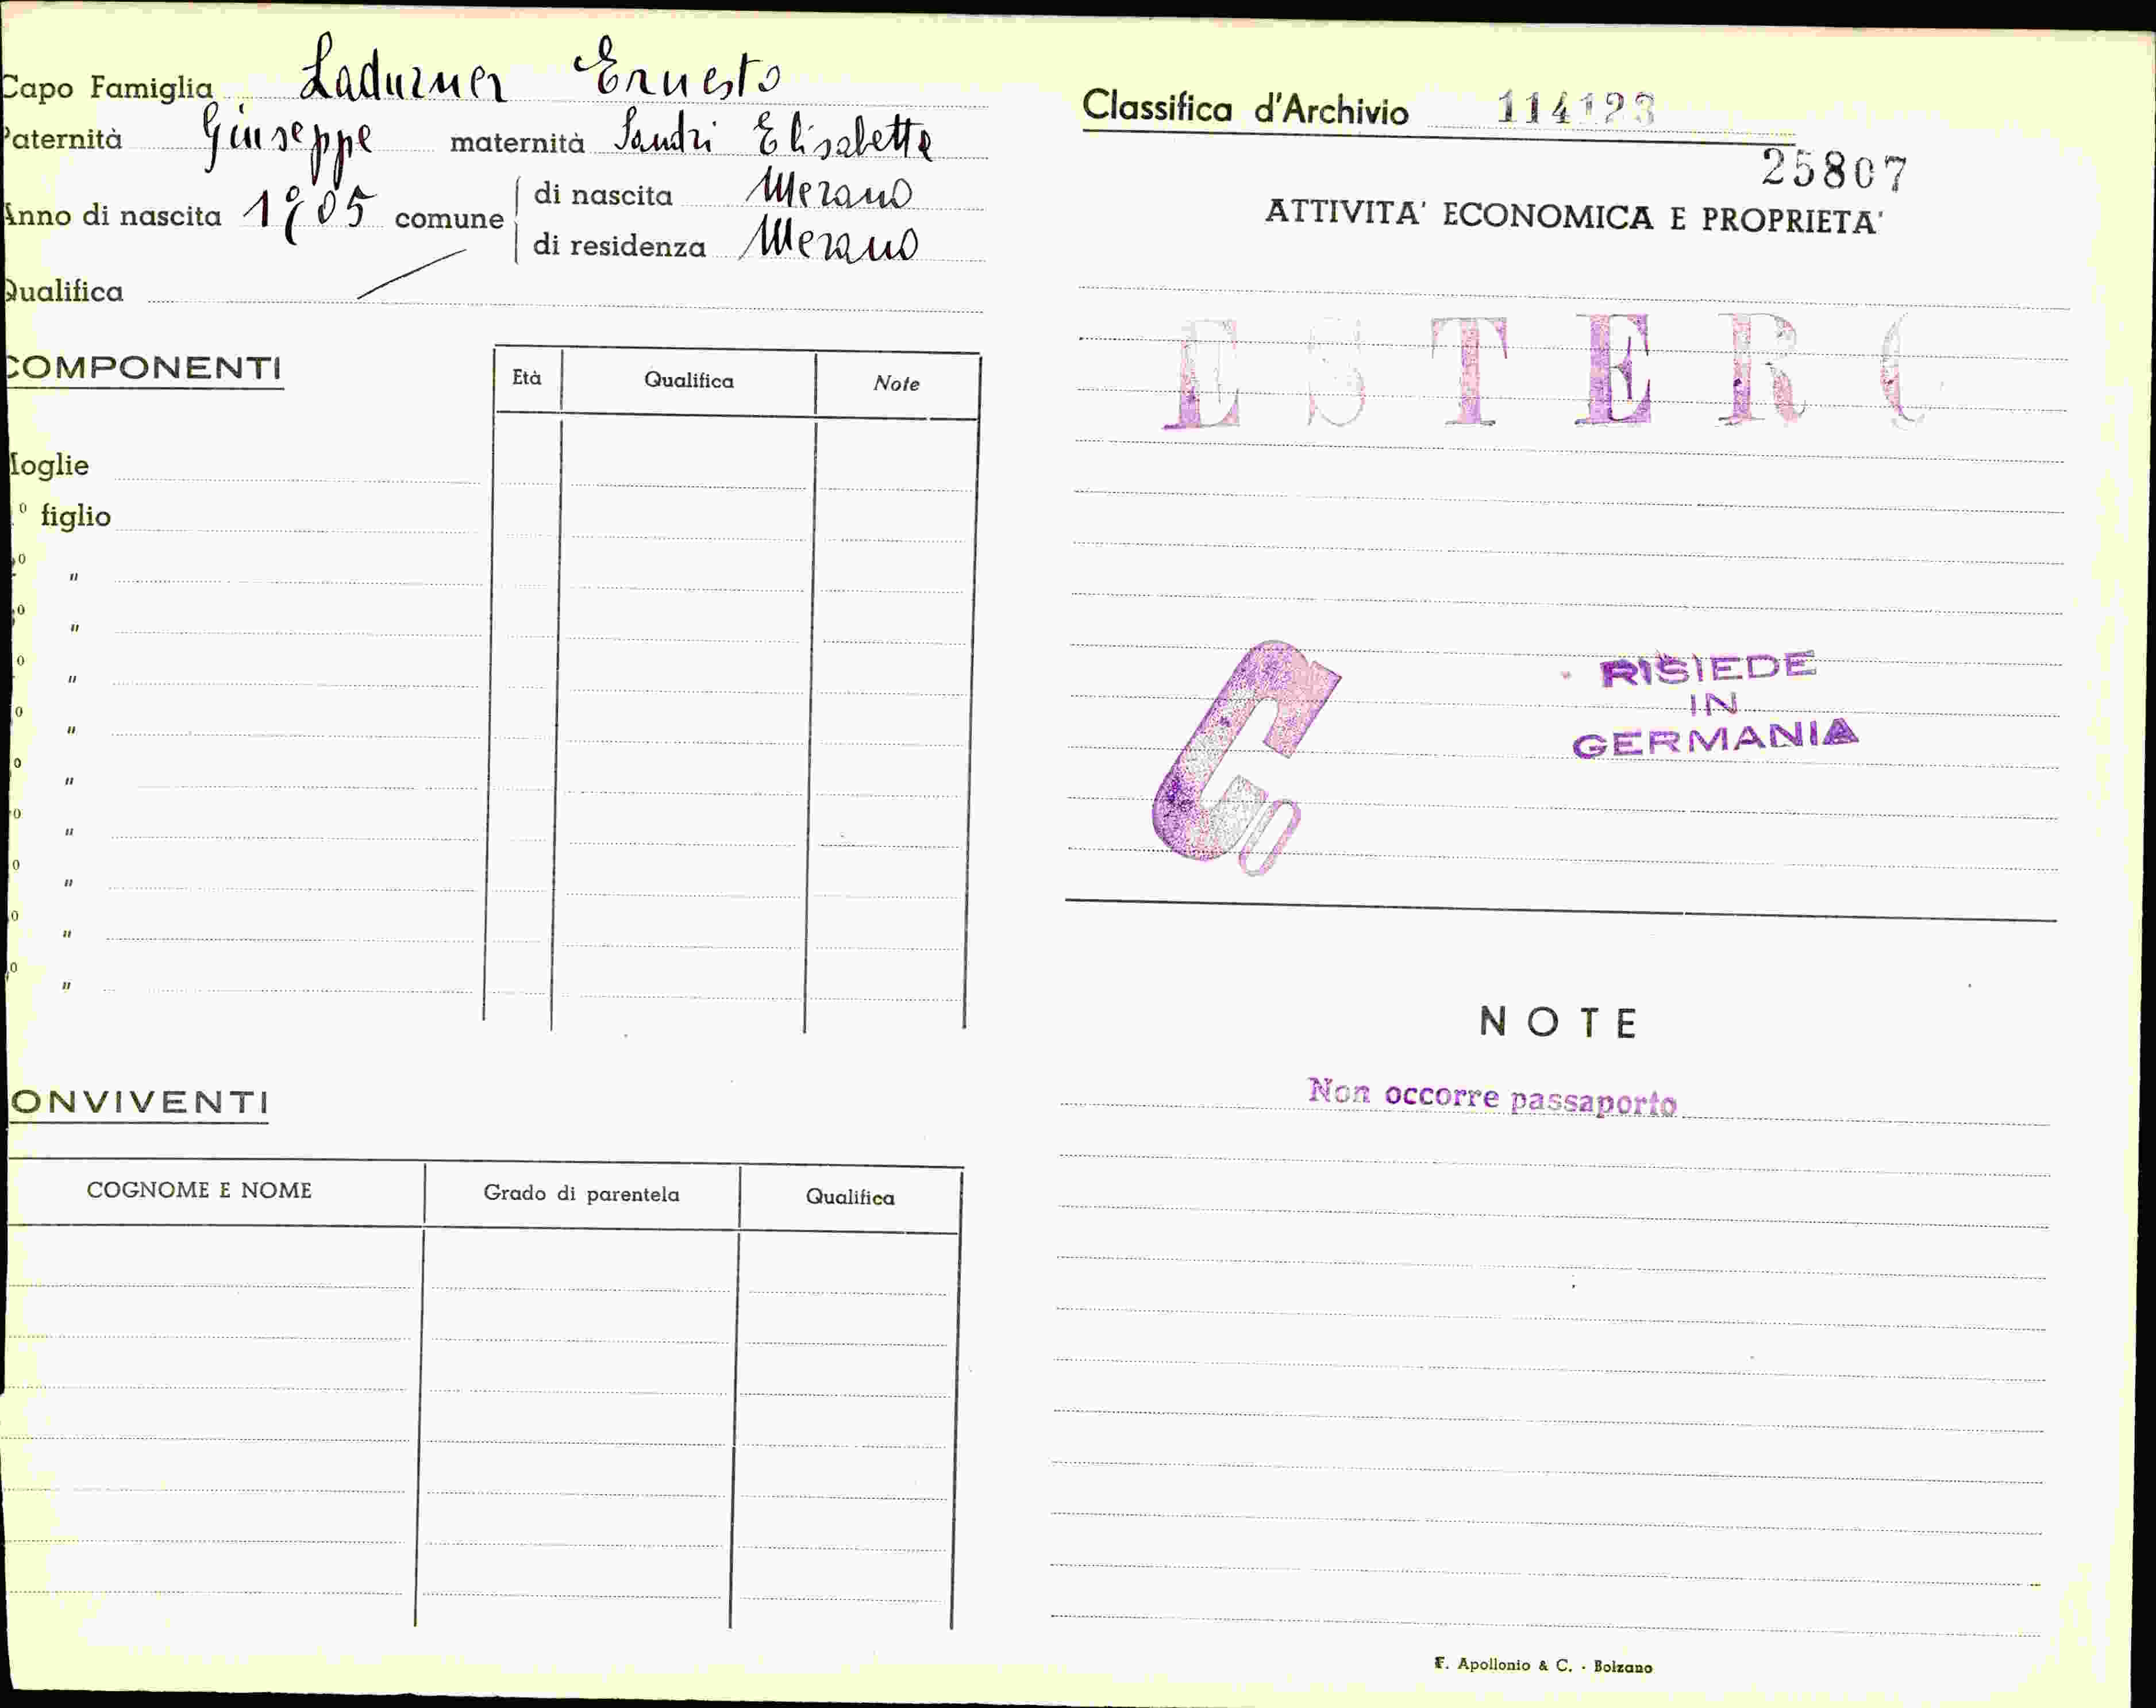 Capo Famiglia Ladurner Ernesto
Paternità Giuseppe maternità Sandri Elisabetta
Anno di nascita 1905 comune di nascita Merano
di residenza Merano
Qualifica
COMPONENTI
Età Qualifica Note
Moglie
1º figlio
º "
º "
º "
º "
º "
º "
º "
º "
º "
CONVIVENTI
COGNOME E NOME Grado di parentela Qualifica
Classifica d'Archivio 114123
25807
ATTIVITA' ECONOMICA E PROPRIETA'
ESTERO
Co
RISIEDE
IN
GERMANIA
NOTE
Non occorre passaporto
F. Apollonio & C. - Bolzano